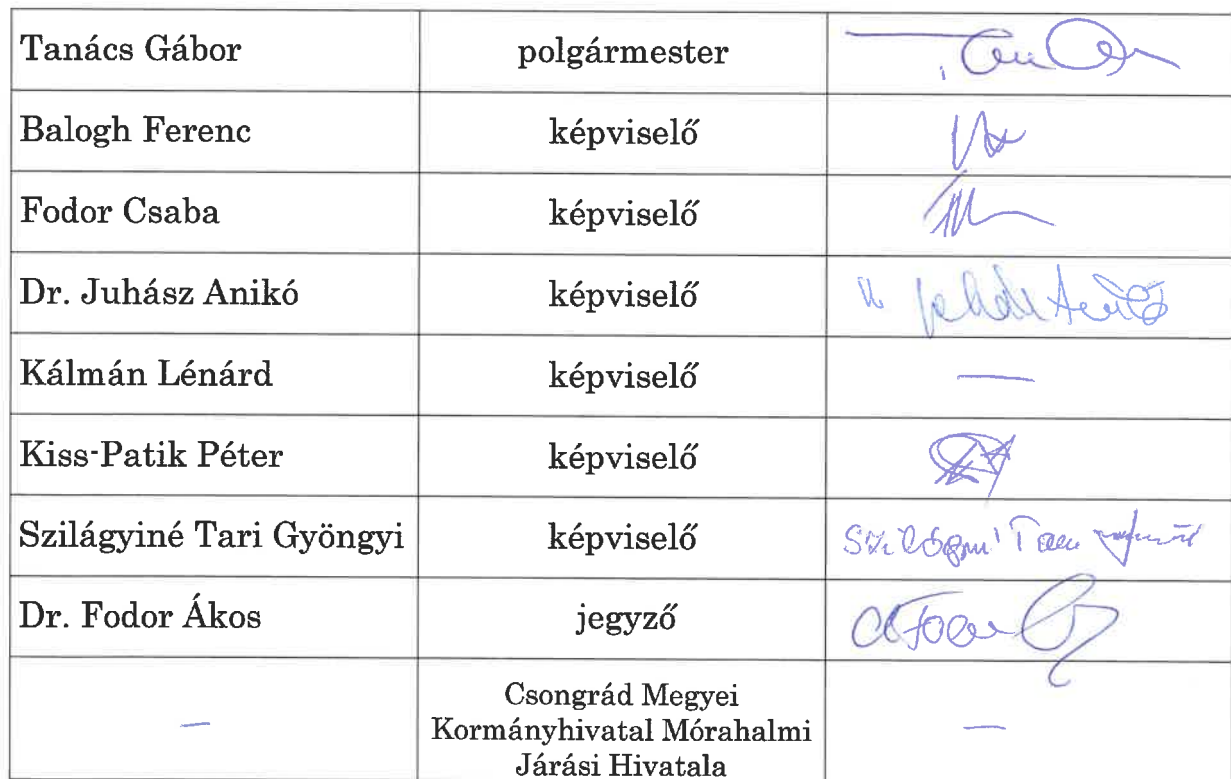 Tanács Gábor polgármester
Balogh Ferenc képviselő
Fodor Csaba képviselő
Dr. Juhász Anikó képviselő
Kálmán Lénárd képviselő —
Kiss-Patik Péter képviselő
Szilágyiné Tari Gyöngyi képviselő
Dr. Fodor Ákos jegyző
— Csongrád Megyei —
Kormányhivatal Mórahalmi
Járási Hivatala